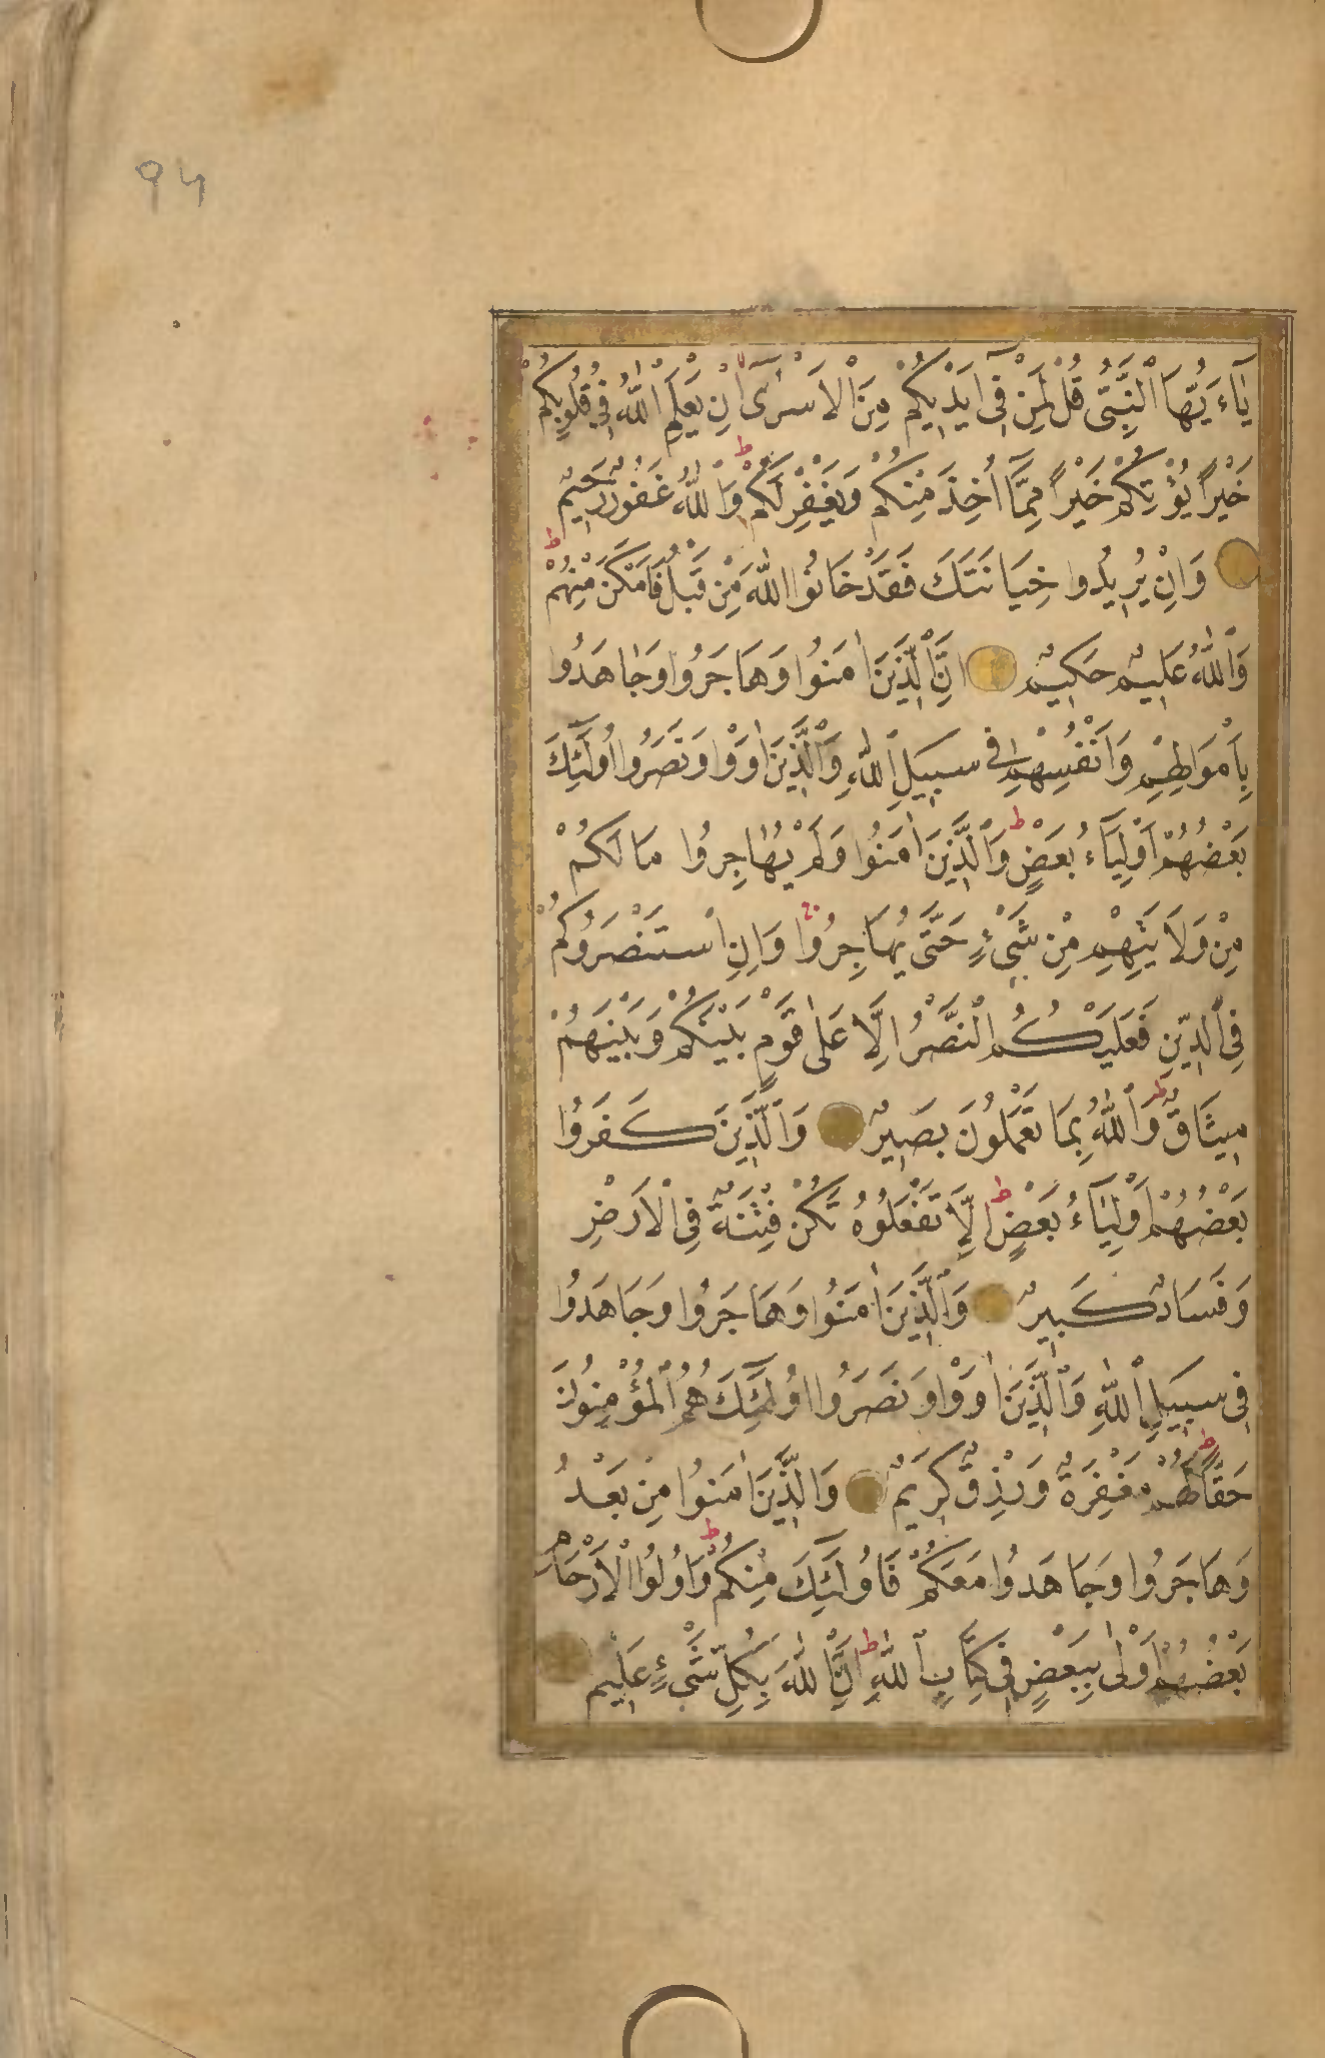 94
يَآءَيُّهَا ٱلنَّبِىُّ قُلْ لِمَنْ فِىٓ اَيْدِيكُمْ مِنَ ٱلْاَسْرٰىٓ اِنْ يَعْلَمِ ٱللّٰهُ فِى قُلُوبِكُمْ
خَيْرًا يُؤْتِكُمْ خَيْرًا مِمَّا اُخِذَ مِنْكُمْ وَيَغْفِرْ لَكُمْ ط وَٱللّٰهُ غَفُورٌ رَحِيمٌ
وَاِنْ يُرِيدُوا خِيَانَتَكَ فَقَدْ خَانُوا ٱللّٰهَ مِنْ قَبْلُ فَاَمْكَنَ مِنْهُمْ ط
وَٱللّٰهُ عَلِيمٌ حَكِيمٌ اِنَّ ٱلَّذِينَ اٰمَنُوا وَهَاجَرُوا وَجَاهَدُوا
بِاَمْوَالِهِمْ وَاَنْفُسِهِمْ فِى سَبِيلِ ٱللّٰهِ وَٱلَّذِينَ اٰوَوْا وَنَصَرُوا اُولٰٓئِكَ
بَعْضُهُمْ اَوْلِيَآءُ بَعْضٍ ط وَٱلَّذِينَ اٰمَنُوا وَلَمْ يُهَاجِرُوا مَا لَكُمْ
مِنْ وَلَايَتِهِمْ مِنْ شَىْءٍ حَتَّى يُهَاجِرُوا ج وَاِنِ ٱسْتَنْصَرُوكُمْ
فِى ٱلدِّينِ فَعَلَيْكُمُ ٱلنَّصْرُ اِلَّا عَلٰى قَوْمٍ بَيْنَكُمْ وَبَيْنَهُمْ
مِيثَاقٌ ط وَٱللّٰهُ بِمَا تَعْمَلُونَ بَصِيرٌ وَٱلَّذِينَ كَفَرُوا
بَعْضُهُمْ اَوْلِيَآءُ بَعْضٍ ط اِلَّا تَفْعَلُوهُ تَكُنْ فِتْنَةٌ فِى ٱلْاَرْضِ
وَفَسَادٌ كَبِيرٌ وَٱلَّذِينَ اٰمَنُوا وَهَاجَرُوا وَجَاهَدُوا
فِى سَبِيلِ ٱللّٰهِ وَٱلَّذِينَ اٰوَوْا وَنَصَرُوا اُولٰٓئِكَ هُمُ ٱلْمُؤْمِنُونَ
حَقًّا ط لَهُمْ مَغْفِرَةٌ وَرِزْقٌ كَرِيمٌ وَٱلَّذِينَ اٰمَنُوا مِنْ بَعْدُ
وَهَاجَرُوا وَجَاهَدُوا مَعَكُمْ فَاُولٰٓئِكَ مِنْكُمْ ط وَاُولُوا ٱلْاَرْحَامِ
بَعْضُهُمْ اَوْلٰى بِبَعْضٍ فِى كِتَابِ ٱللّٰهِ ط اِنَّ ٱللّٰهَ بِكُلِّ شَىْءٍ عَلِيم